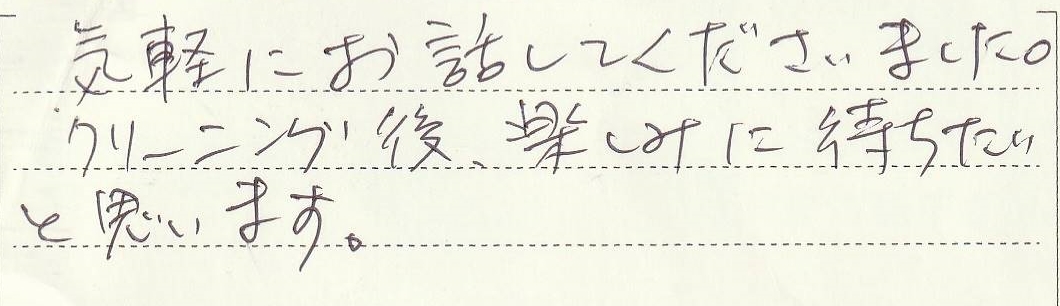 気軽にお話してくださいました。
クリーニング後、楽しみに待ちたい
と思います。